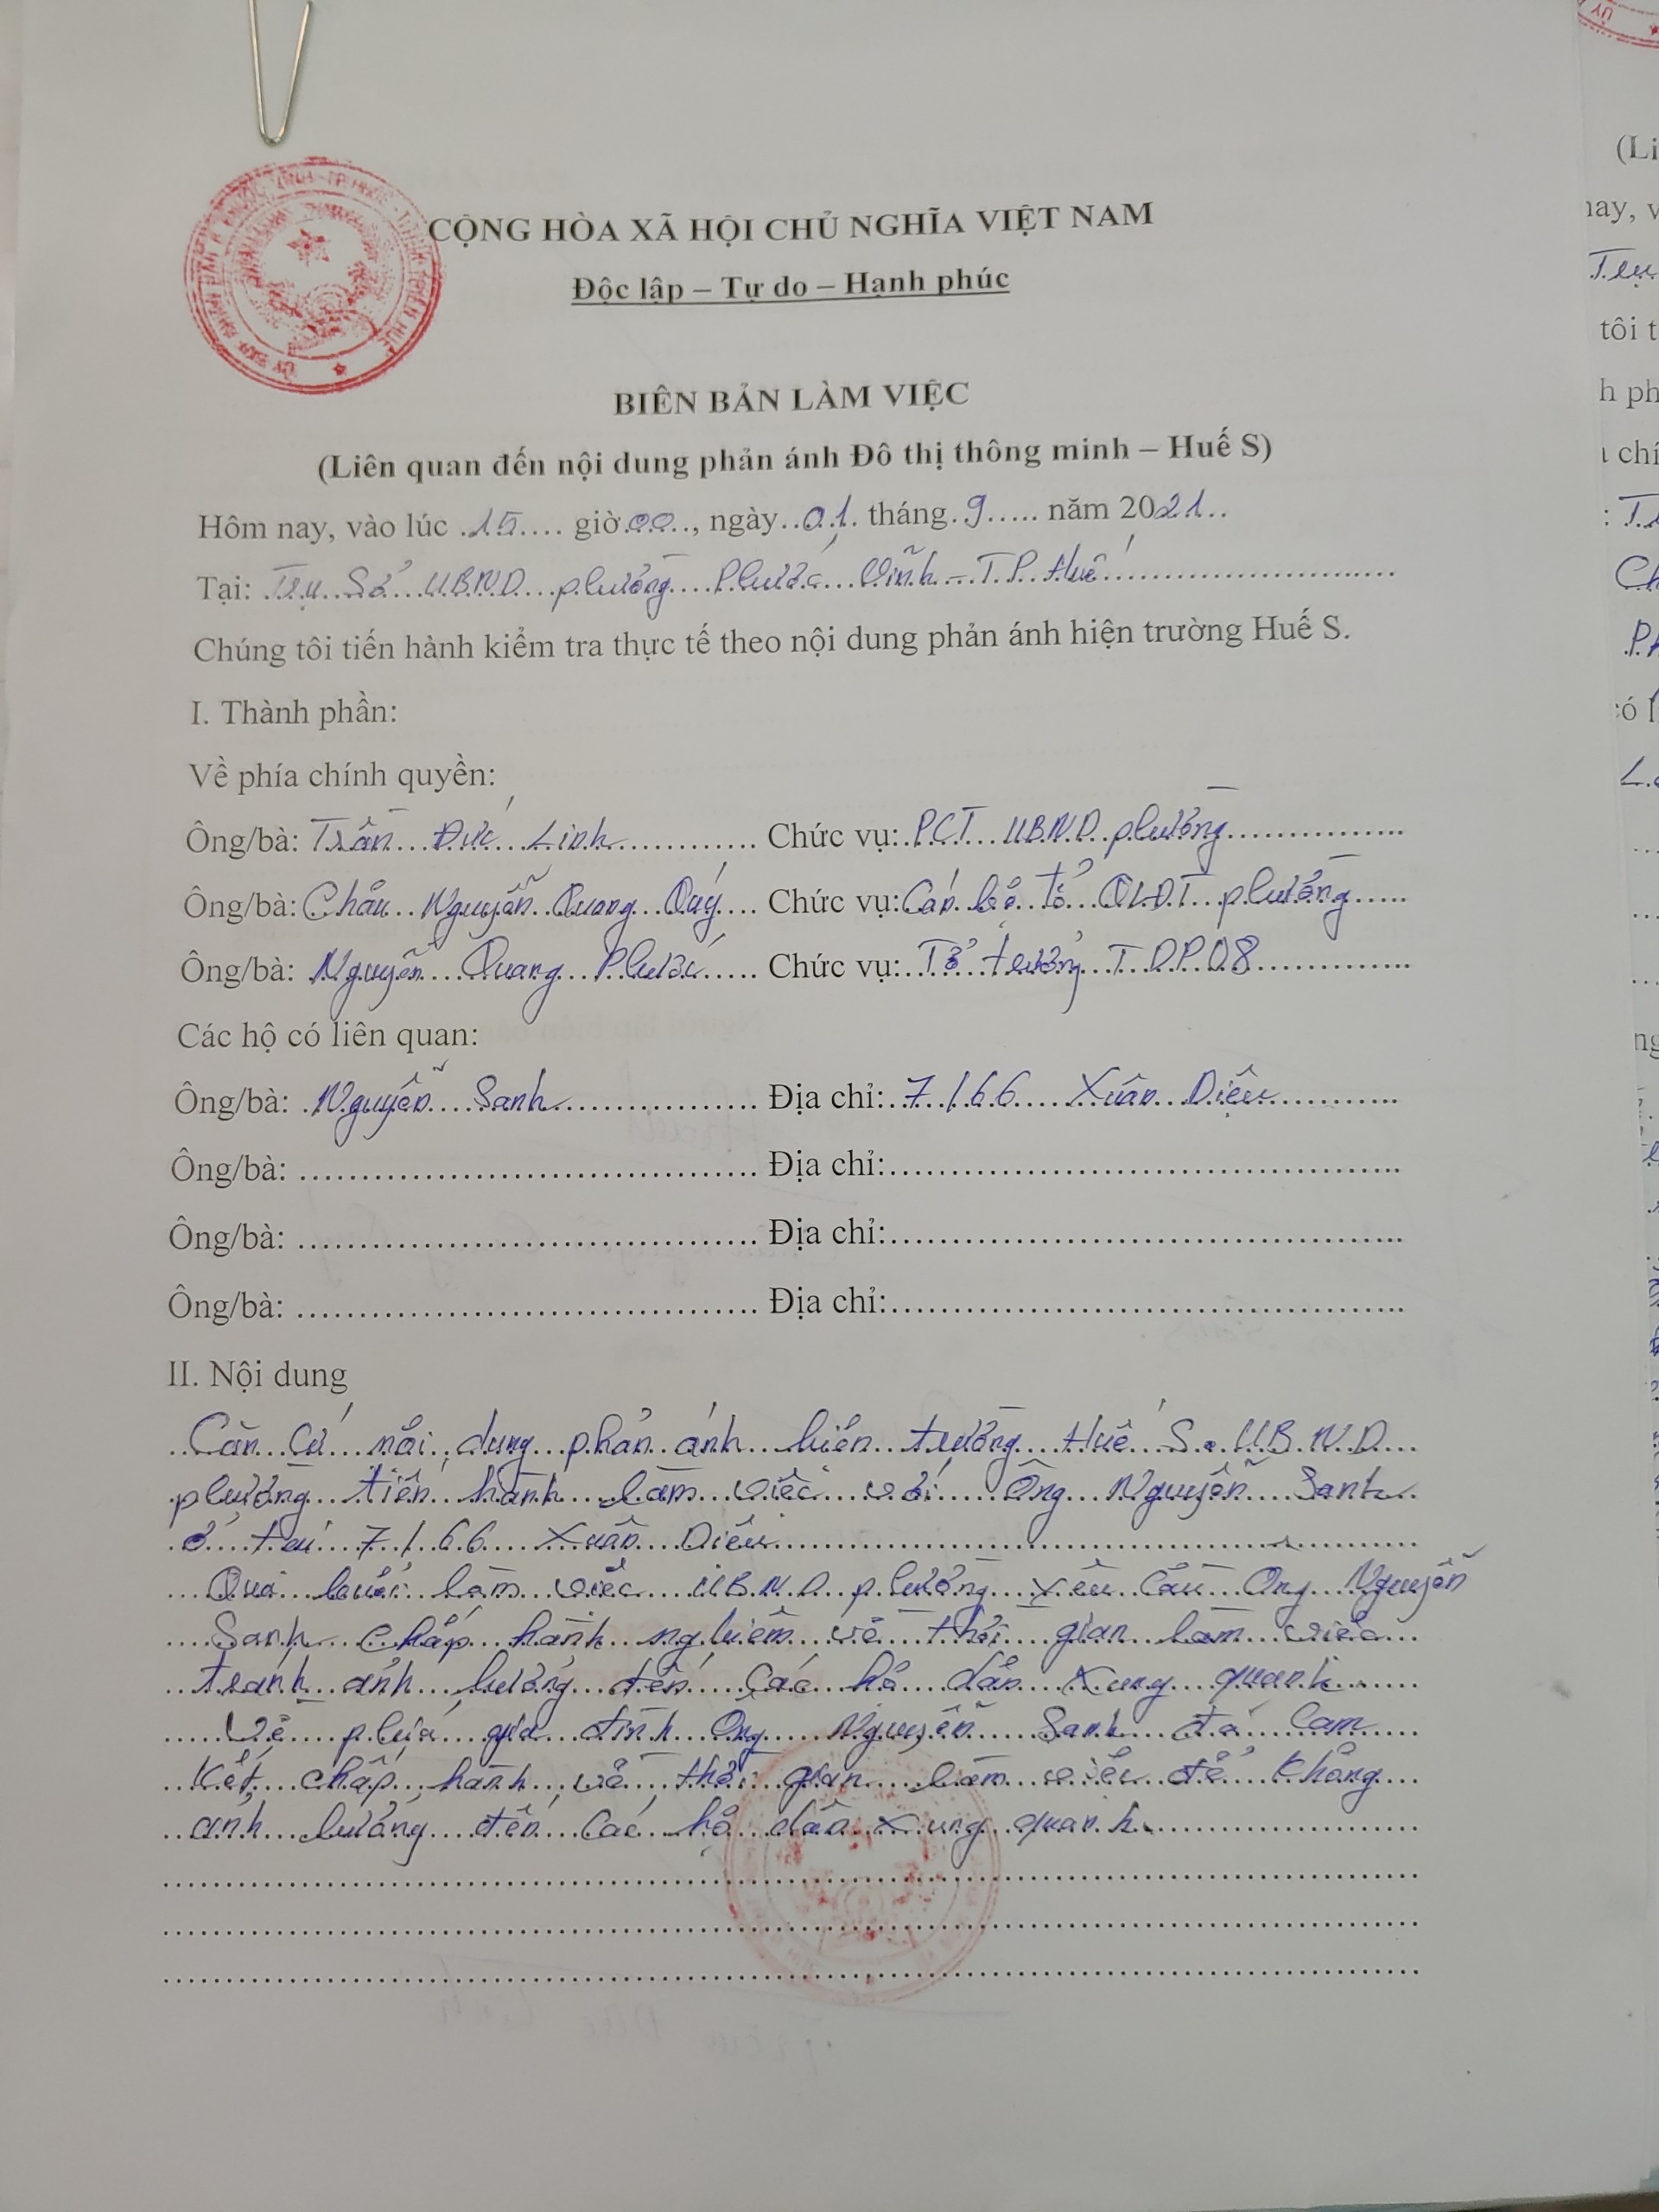 CỘNG HÒA XÃ HỘI CHỦ NGHĨA VIỆT NAM
Độc lập – Tự do – Hạnh phúc
BIÊN BẢN LÀM VIỆC
(Liên quan đến nội dung phản ánh Đô thị thông minh – Huế S)
Hôm nay, vào lúc 15 giờ 00, ngày 01 tháng 9 năm 2021
Tại: Trụ Sở UBND phường Phước Vĩnh - TP Huế
Chúng tôi tiến hành kiểm tra thực tế theo nội dung phản ánh hiện trường Huế S.
I. Thành phần:
Về phía chính quyền:
Ông/bà: Trần Đức Linh Chức vụ: PCT UBND phường
Ông/bà: Châu Nguyễn Quang Quý Chức vụ: Cán bộ tổ QLĐT phường
Ông/bà: Nguyễn Quang Phước Chức vụ: Tổ trưởng TDP 08
Các hộ có liên quan:
Ông/bà: Nguyễn Sanh Địa chỉ: 7/66 Xuân Diệu
Ông/bà: Địa chỉ:
Ông/bà: Địa chỉ:
Ông/bà: Địa chỉ:
II. Nội dung
Căn cứ nội dung phản ánh hiện trường Huế S. UBND
phường tiến hành làm việc với Ông Nguyễn Sanh
ở tại 7/66 Xuân Diệu
Qua buổi làm việc UBND phường yêu cầu Ông Nguyễn
Sanh chấp hành nghiêm về thời gian làm việc
tránh ảnh hưởng đến các hộ dân xung quanh
Về phía gia đình Ông Nguyễn Sanh đã cam
kết chấp hành về thời gian làm việc để không
ảnh hưởng đến các hộ dân xung quanh.